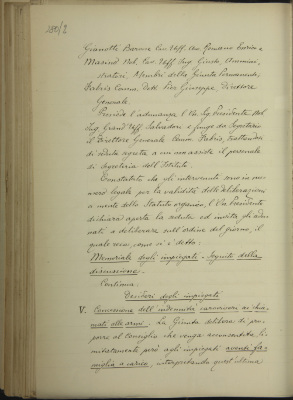 280/2
Gianotti Barone Cav. Uff. Avv. Romano Enrico e
Masino Nob. Cav. Uff. Ing. Guido, Ammini-
stratori, Membri della Giunta Permanente,
Fabris Comm. Dott. Pier Giuseppe Direttore
Generale.
Presiede l'adunanza il V. Pres
Ing. Grand'Uff. Salvadori e funge da Segretario
il Direttore Generale Comm. Fabris, trattandosi
di seduta segreta e non assiste il personale
di Segreteria dell'Istituto.
Constatato che gli intervenuti sono in nu-
mero legale per la validità delle deliberazioni
a mente dello Statuto organico, il Presidente
dichiara aperta la seduta ed invita gli adu-
nati a deliberare sull'ordine del giorno, il
quale reca, come si è detto:
Memoriale degli impiegati - Seguito della
discussione.
Continua:
Desideri degli impiegati
V. Concessione dell'indennità caroviveri ai chia-
mati alle armi. La Giunta delibera di pro-
porre al Consiglio che venga acconsentita li-
mitatamente però agli impiegati aventi fa-
miglia a carico, interpretando quest'ultima